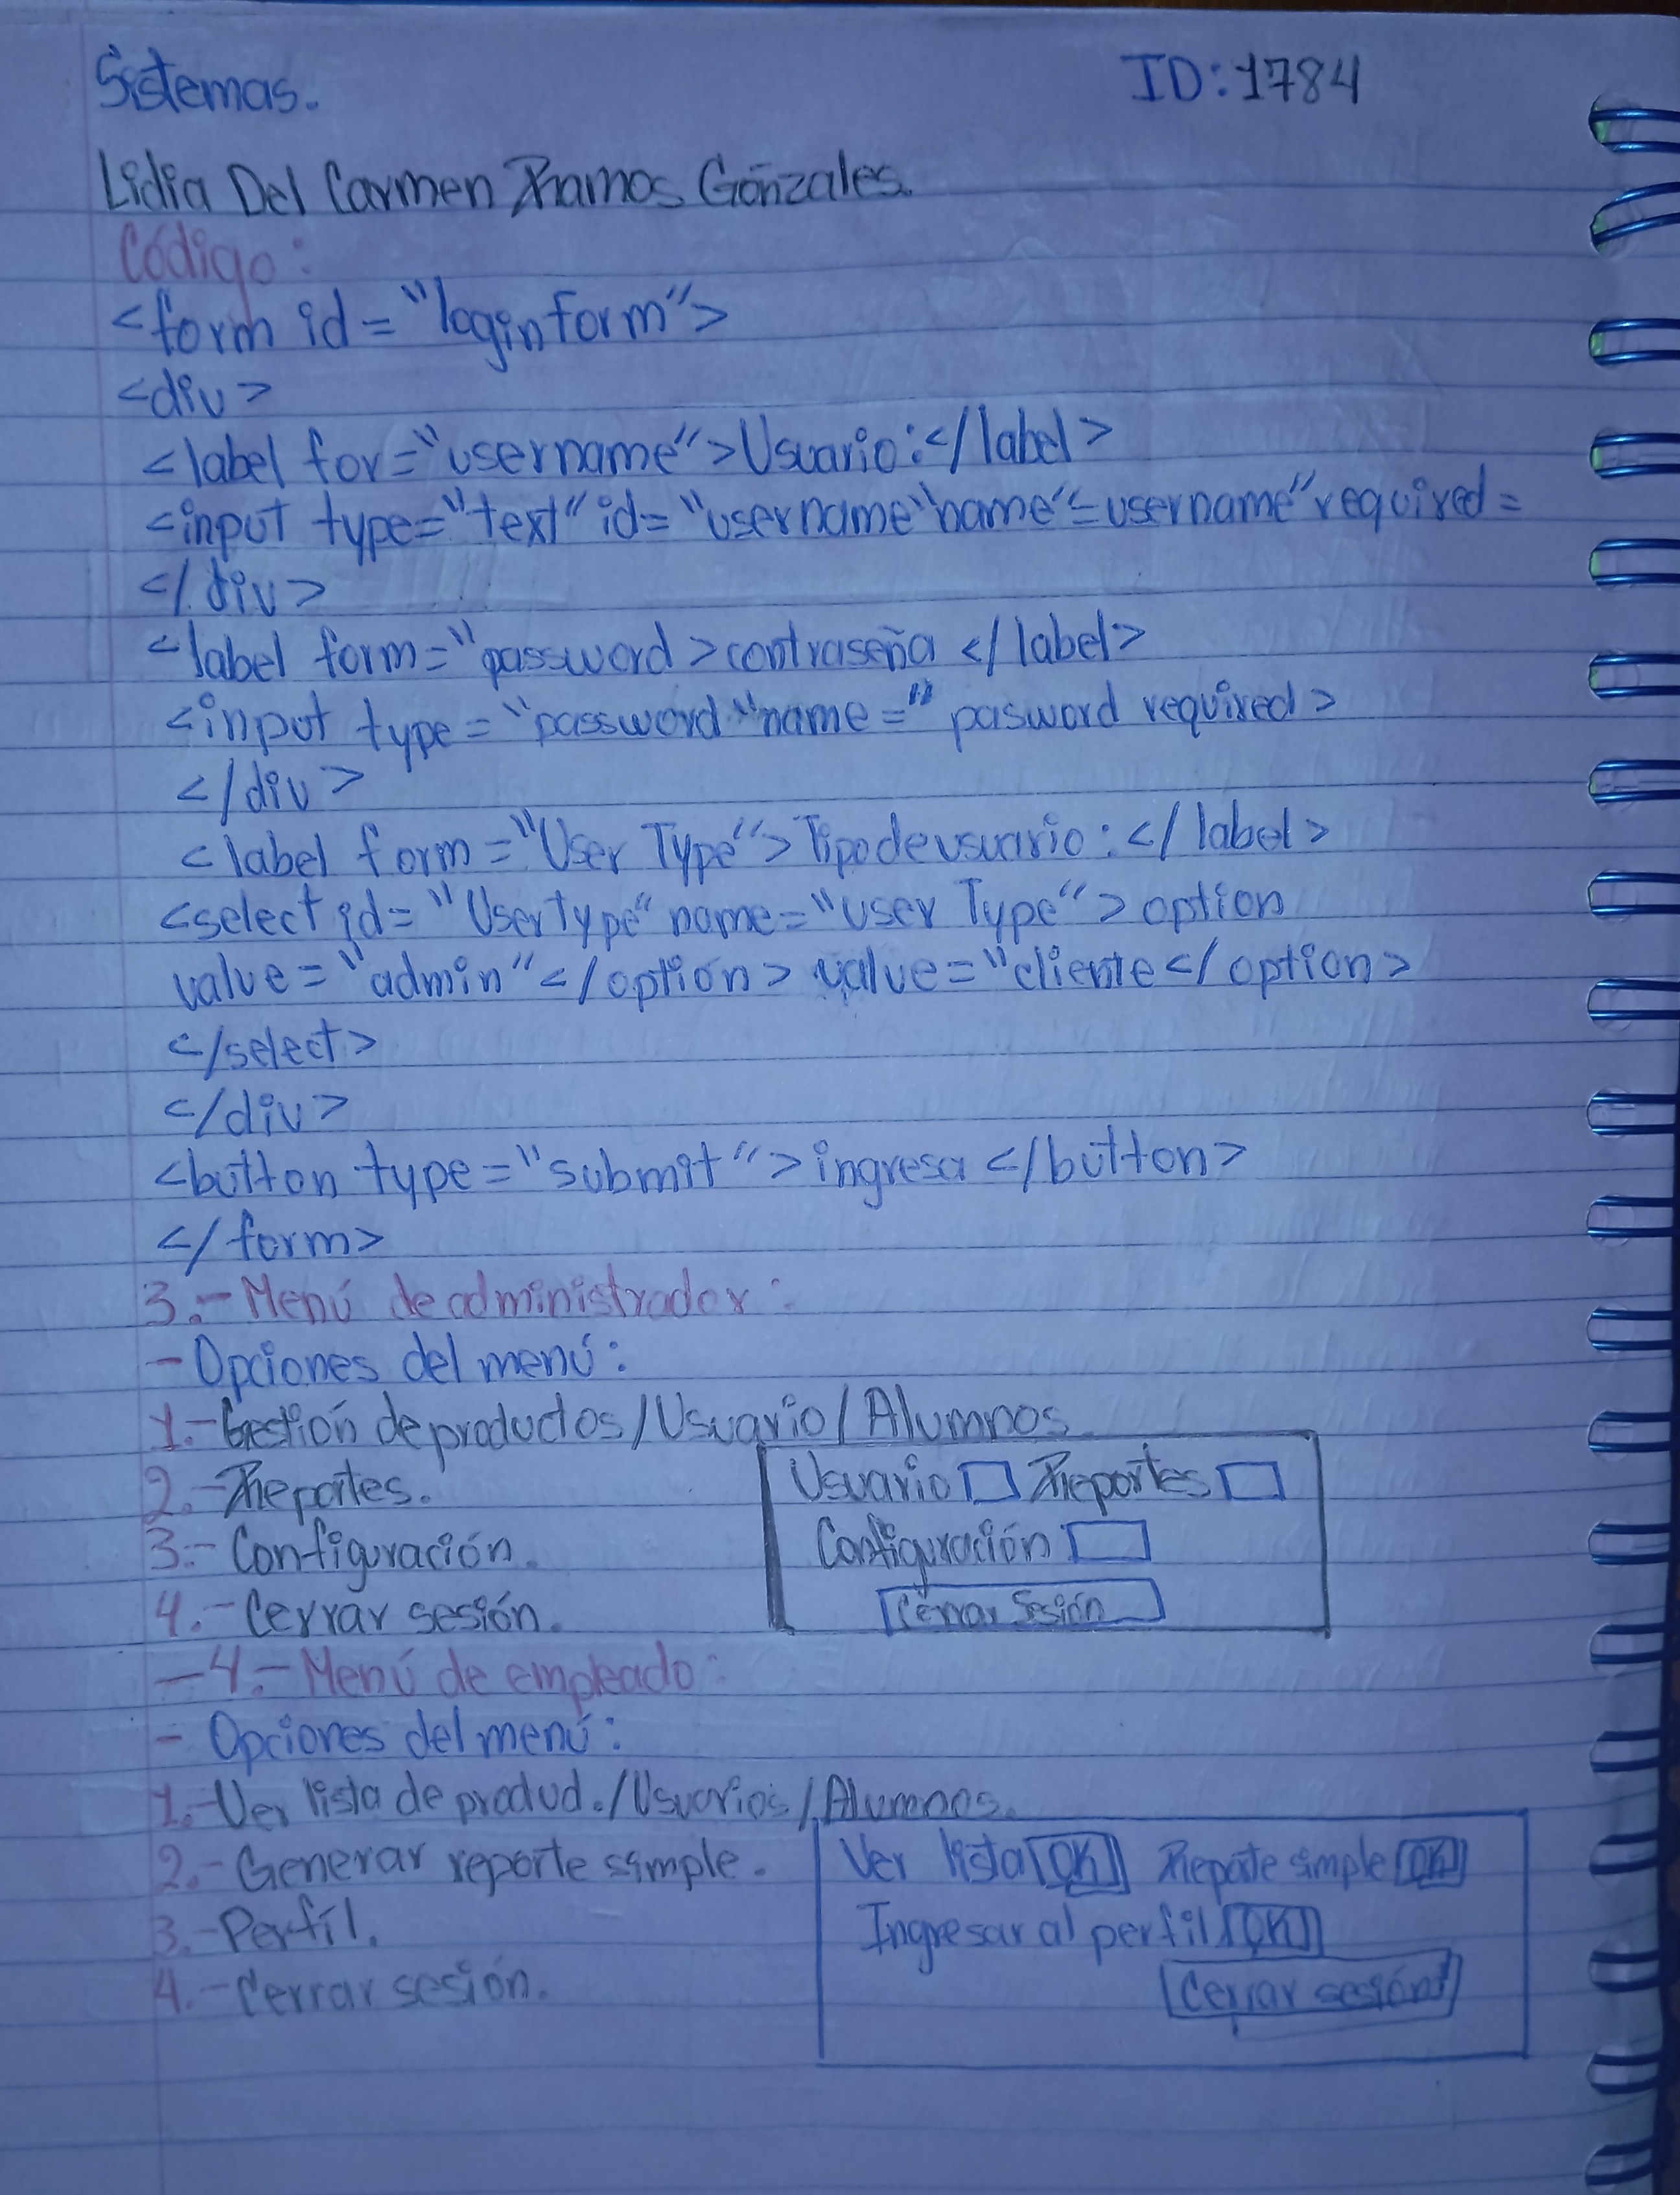 Sistemas. ID:1784
Lidia Del Carmen Ramos Gonzales.
Código:
<form id="loginform">
<div>
<label for="username">Usuario:</label>
<input type="text" id="username" name"=username" required=
</div>
<label form="password>contraseña </label>
<input type="password" name=" pasword required>
</div>
<label form="User Type">Tipo de usuario:</label>
<select id="Usertype" name="user Type">option
value="admin"</option> value="cliente</option>
</select>
</div>
<button type="submit">ingresa</button>
</form>
3.- Menú de administrador:
- Opciones del menú:
1.- Gestión de productos/Usuario/Alumnos
2.- Reportes.
3.- Configuración.
4.- Cerrar sesión.
Usuario Reportes
Configuración
Cerrar Sesión
-4.- Menú de empleado:
- Opciones del menú:
1.- Ver lista de produd./Usuarios/Alumnos.
2.- Generar reporte simple.
3.- Perfíl.
4.- Cerrar sesión.
Ver lista OK Reporte simple OK
Ingresar al perfil OK
Cerrar sesión